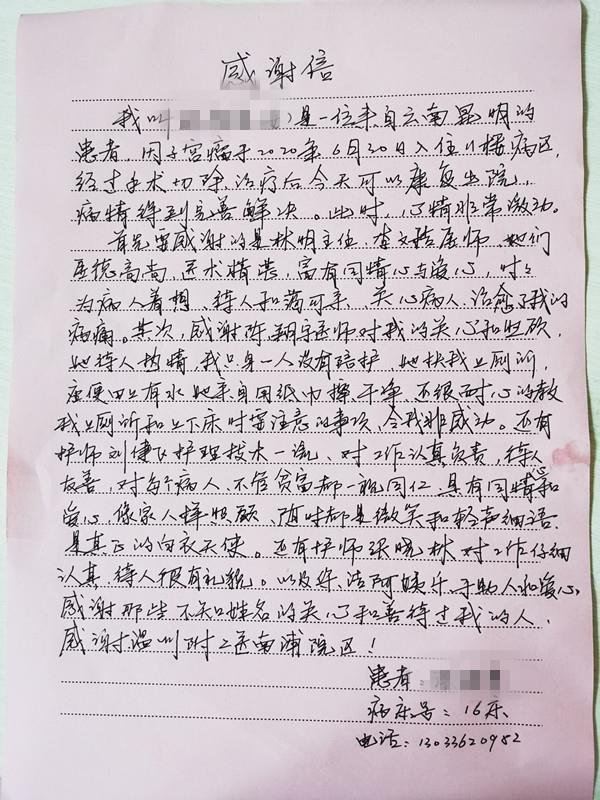 感谢信
我叫 )是一位来自云南昆明的
患者,因子宫癌于2020年6月30日入住11楼病区,
经过手术切除治疗后今天可以康复出院,
病情得到完善解决。此时,心情非常激动。
首先要感谢的是林明主任,李文 医师,她们
医德高尚,医术精装,富有同情心与爱心,时时
为病人着想、待人和蔼可亲、关心病人,治愈了我的
病痛。其次,感谢陈翔宇医师对我的关心和照顾,
她待人热情,我只身一人没有陪护,她扶我上厕所,
座便四上有水她亲自用纸巾擦干净,还很耐心的教
我上厕所和上下床时要注意的事项,令我非感动。还有
护师刘 护理技术一流、对工作认真负责,待人
友善,对每个病人,不管贫富都一视同仁,具有同情心和
爱心,像家人样照顾,随时都是微笑和轻声细语,
是真正的白衣天使。还有护师张晓林对工作仔细
认真,待人很有礼貌。以及保洁阿姨乐于助人和爱心,
感谢那些不知姓名的关心和善待过我的人,
感谢温州附二医南浦院区!
患者:
病床号:16床
电话:13033620982